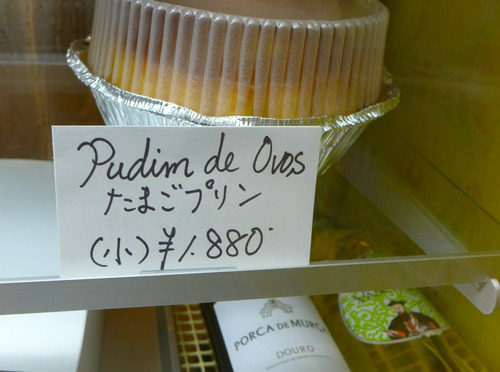 Pudim de Ovos
たまごプリン
(小) ¥1.880-
PORCA DE MURÇA
DOURO